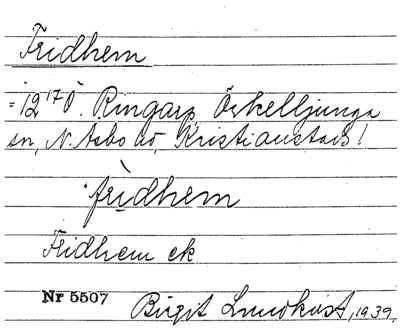 Fridhem
= 12¹⁷ Ö. Ringarp, Örkelljunga
sn, N. Åsbo hd, Kristianstads l
frìdhem
Fridhem ek
Nr 5507
Birgit Lundkvist, 1939.